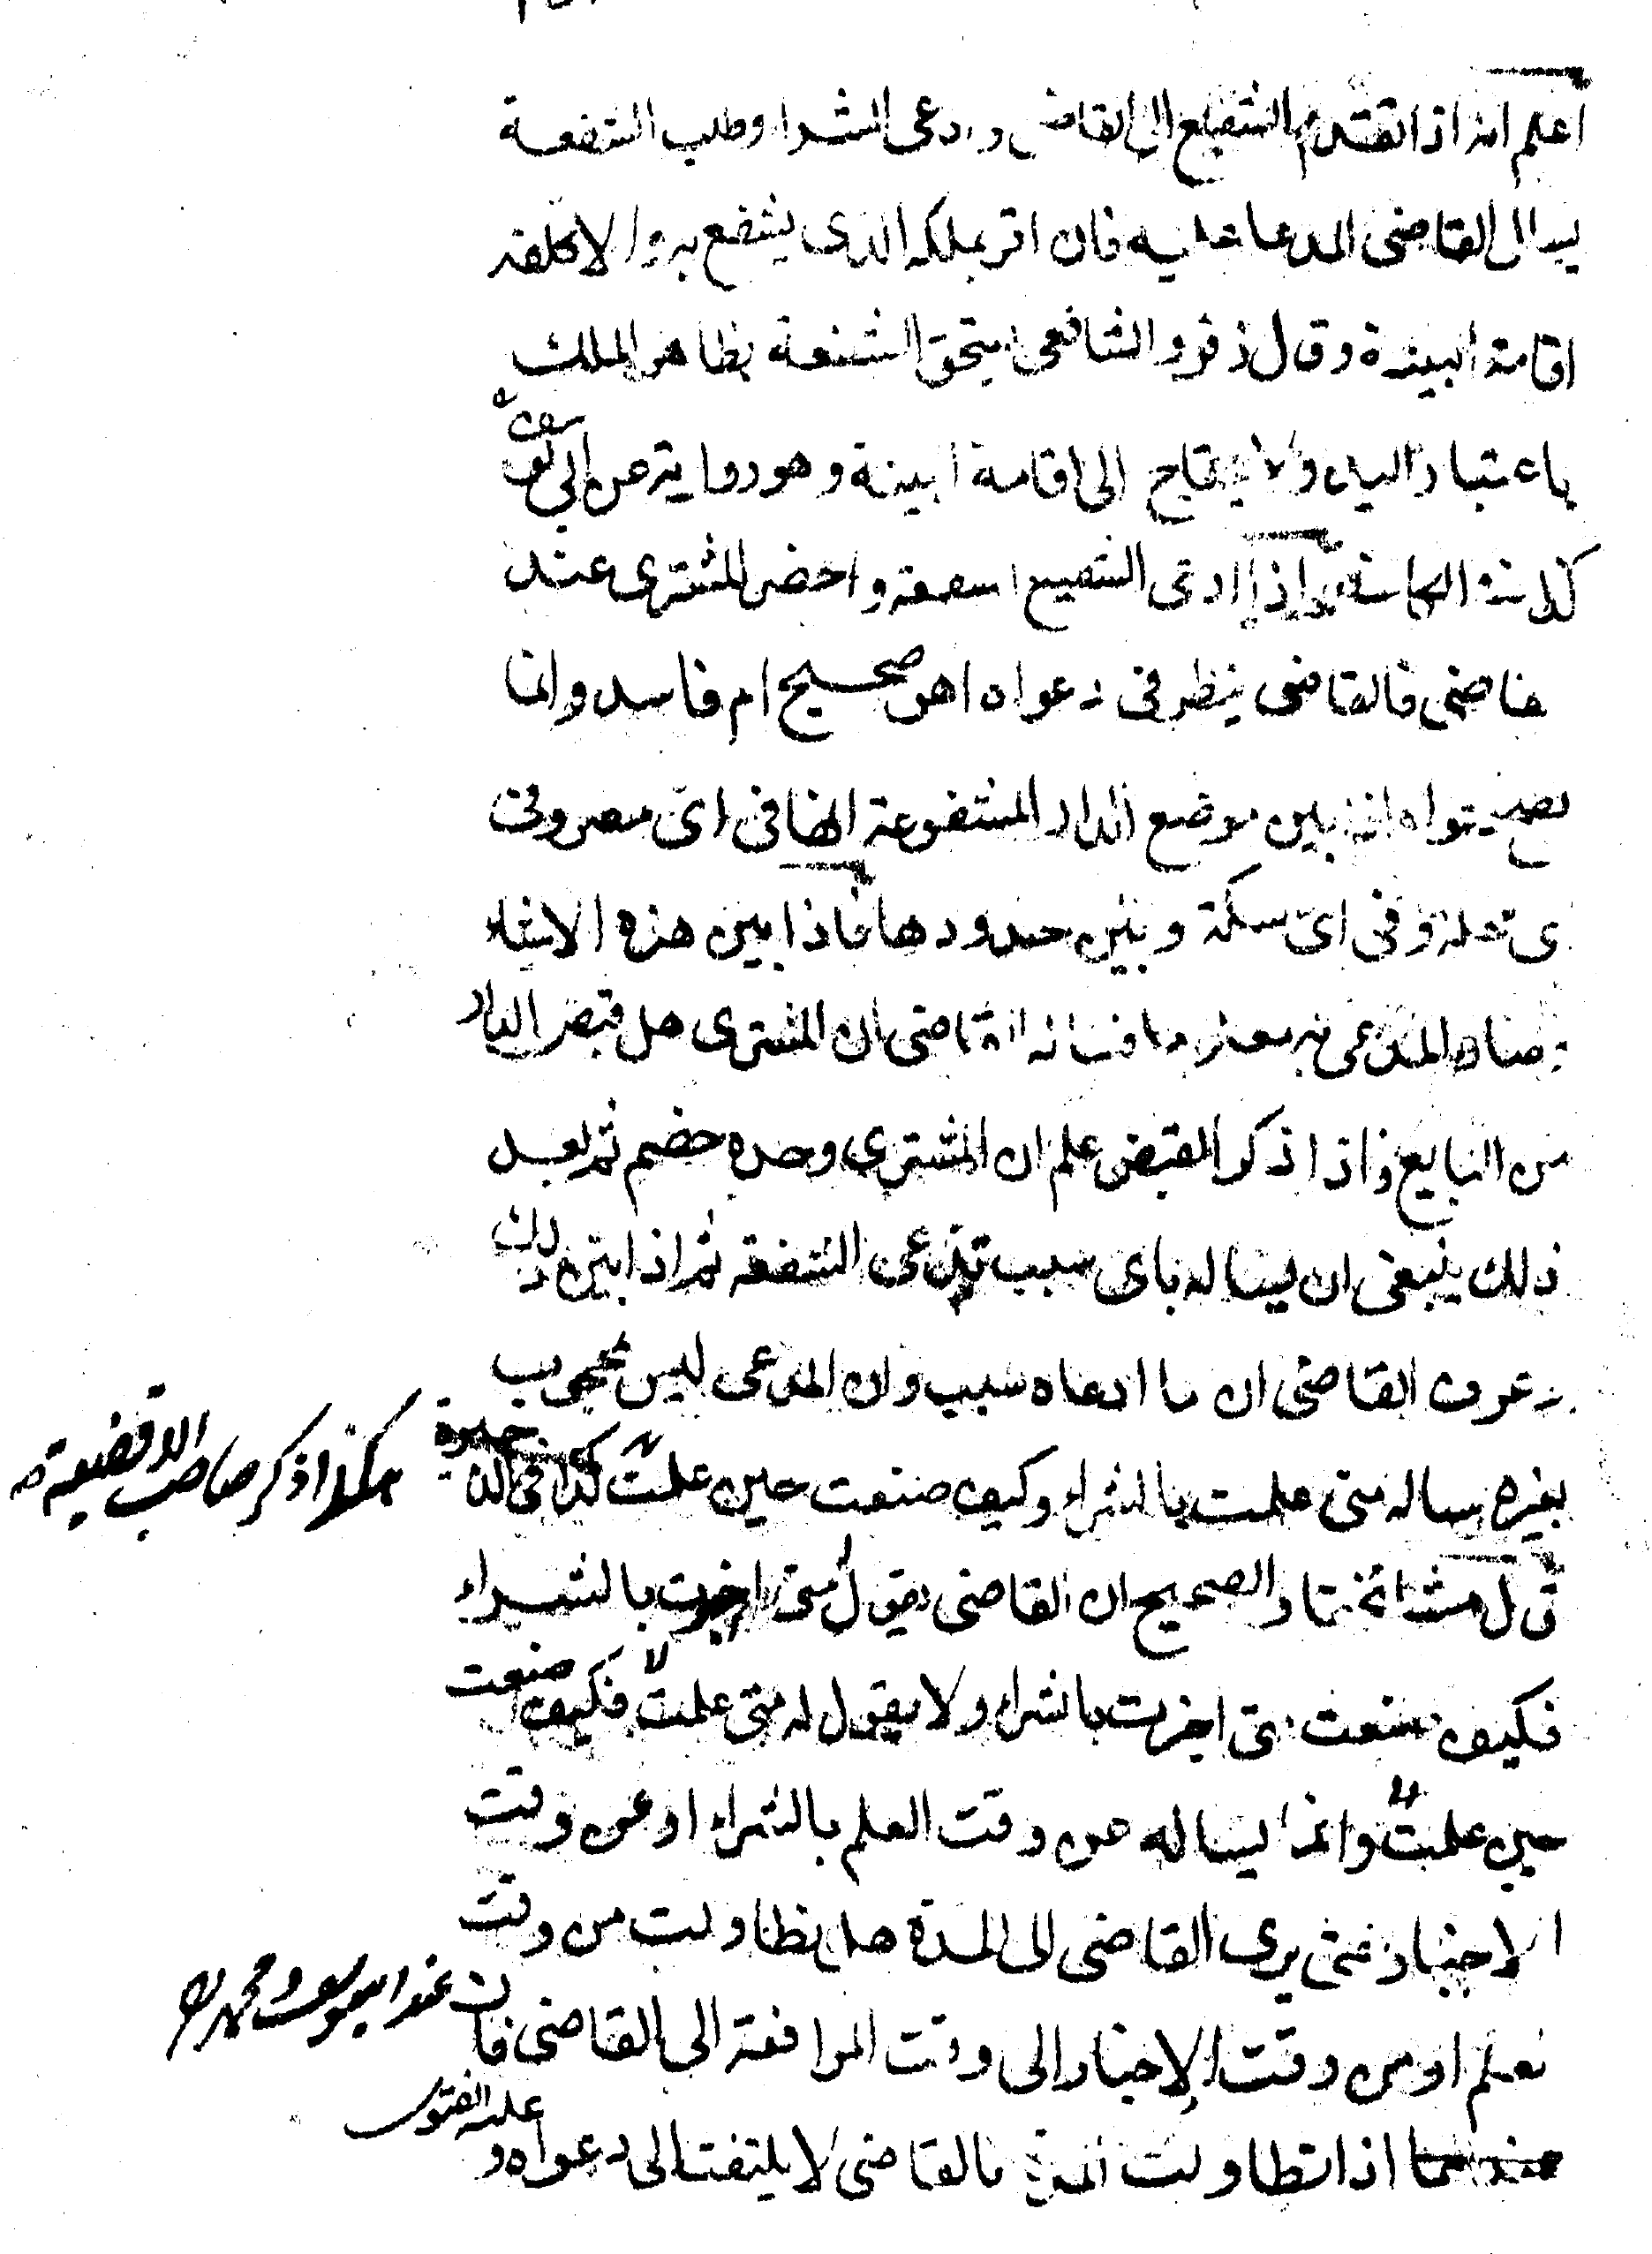 اعلم انه اذا تقدم الشفيع الى القاضى وادعى الشرا وطلب الشفعة
يسال القاضى المدعا عليه فان اقر بملكه الذى يشفع به والا كلفه
اقامة البينة وقال زفر والشافعى يستحق الشفعة بظاهر الملك
باعتبار اليد ولا يحتاج الى اقامة البينة وهو رواية عن ابى يوسف
واذا ادعى الشفيع الشفعة واحضر المشترى عند
القاضى فالقاضى ينظر فى دعواه اهو صحيح ام فاسد وانما
يصح دعواه اذا بين موضع الدار المشفوعة انها فى اى مصر وفى
اى محلة وفى اى سكة وبين حدودها فاذا بين هذه الاشياء
وصار المدعى به معلوما فساله القاضى ان المشترى هل قبض الدار
من البايع فاذا ذكر القبض علم ان المشترى وحده خصم ثم بعد
ذلك ينبغى ان يساله باى سبب تدعى الشفعة ثم اذا بين ذلك
وعرف القاضى ان ما ادعاه سبب وان المدعى ليس بمحجوب
بغيره ساله متى علمت بالشراء وكيف صنعت حين علمت كذا فى الذخيرة
هكذا ذكر صاحب الاقضية
قال مشايخنا والصحيح ان القاضى يقول متى اخبرت بالشراء
فكيف صنعت متى اخبرت بالشراء ولا يقول له متى علمت فكيف صنعت
حين علمت وانما يساله عن وقت العلم بالشراء او عن وقت
الاخبار حتى يرى القاضى الى المدة هل تطاولت من وقت
العلم او من وقت الاخبار الى وقت المرافعة الى القاضى فان
عند ابى يوسف ومحمد
عليه الفتوى
عندهما اذا تطاولت المدة فالقاضى لا يلتفت الى دعواه و